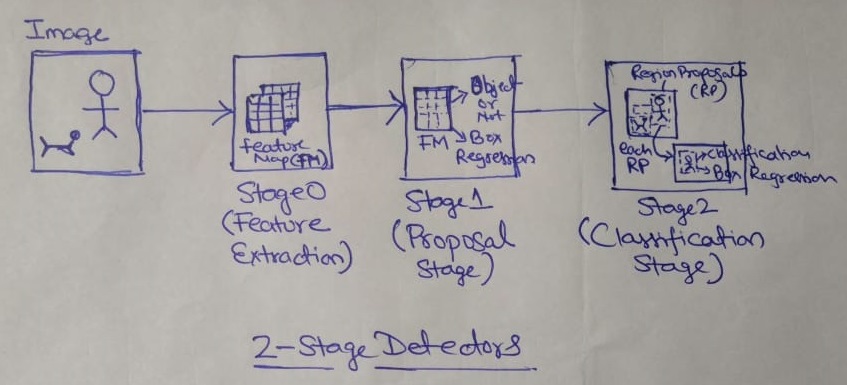 Image
Feature
Map(FM)
Stage0
(Feature
Extraction)
Object
or
Not
FM
Box
Regression
Stage1
(Proposal
Stage)
Region Proposals
(RP)
each
RP
Classification
Box Regression
Stage2
(Classification
Stage)
2-Stage Detectors